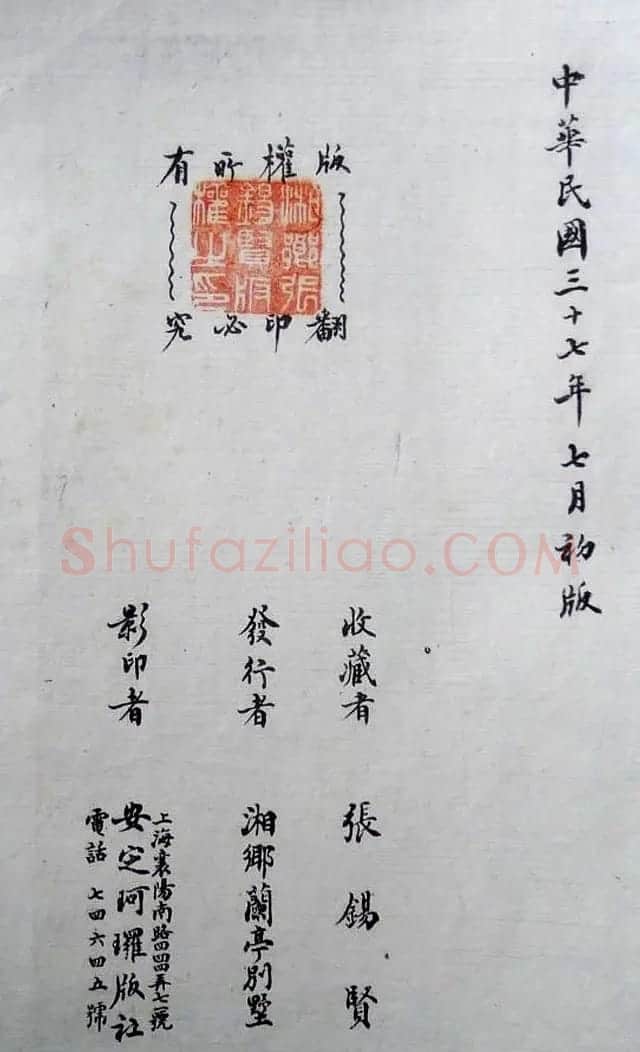 中華民國三十七年七月初版
版權所有
湘鄉張
錫賢版
權之印
翻印必究
收藏者 張錫賢
發行者 湘鄉蘭亭別墅
影印者 安定珂瓘版社
上海襄陽南路四四弄七號
電話 七四六四五號
Shufaziliao.COM